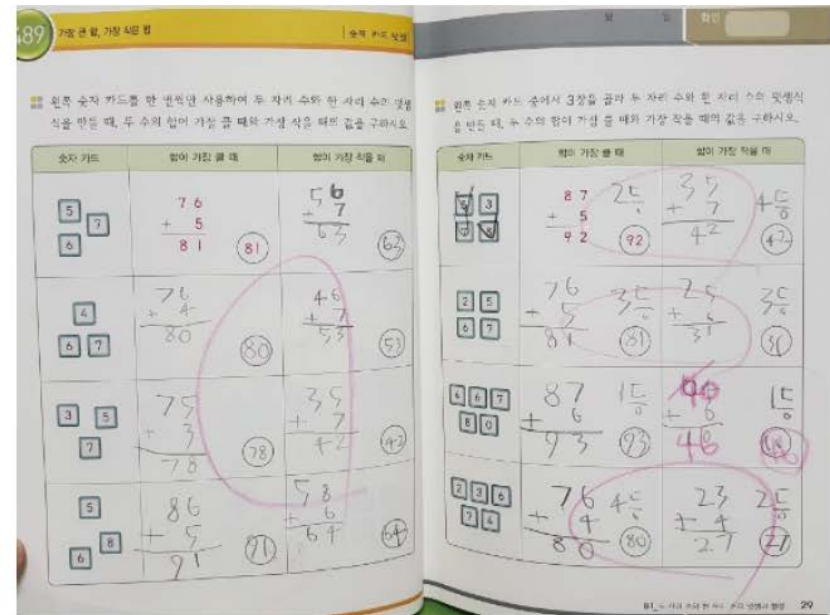 489 가장 큰 합, 가장 작은 합
숫자 카드 덧셈
왼쪽 숫자 카드를 한 번씩만 사용하여 두 자리 수와 한 자리 수의 덧셈
식을 만들 때, 두 수의 합이 가장 클 때와 가장 작을 때의 값을 구하시오.
숫자 카드 합이 가장 클 때 합이 가장 작을 때
5 7 6
76
+ 5
81 81
56
+ 7
63 63
4 6 7
76
+ 4
80 80
46
+ 7
53 53
3 5 7
75
+ 3
78 78
35
+ 7
42 42
5 8 6
86
+ 5
91 91
58
+ 6
64 64
월 일 확인
왼쪽 숫자 카드 중에서 3장을 골라 두 자리 수와 한 자리 수의 덧셈식
을 만들 때, 두 수의 합이 가장 클 때와 가장 작을 때의 값을 구하시오.
숫자 카드 합이 가장 클 때 합이 가장 작을 때
3
87
+ 5
92 92
35
+ 7
42 42
2 5
6 7
76
+ 5
81 81
25
+ 6
31 31
4 6 7
8 0
87
+ 6
93 93
+ 6
46
2 3 6
7 4
76
+ 4
80 80
23
+ 4
27 27
29